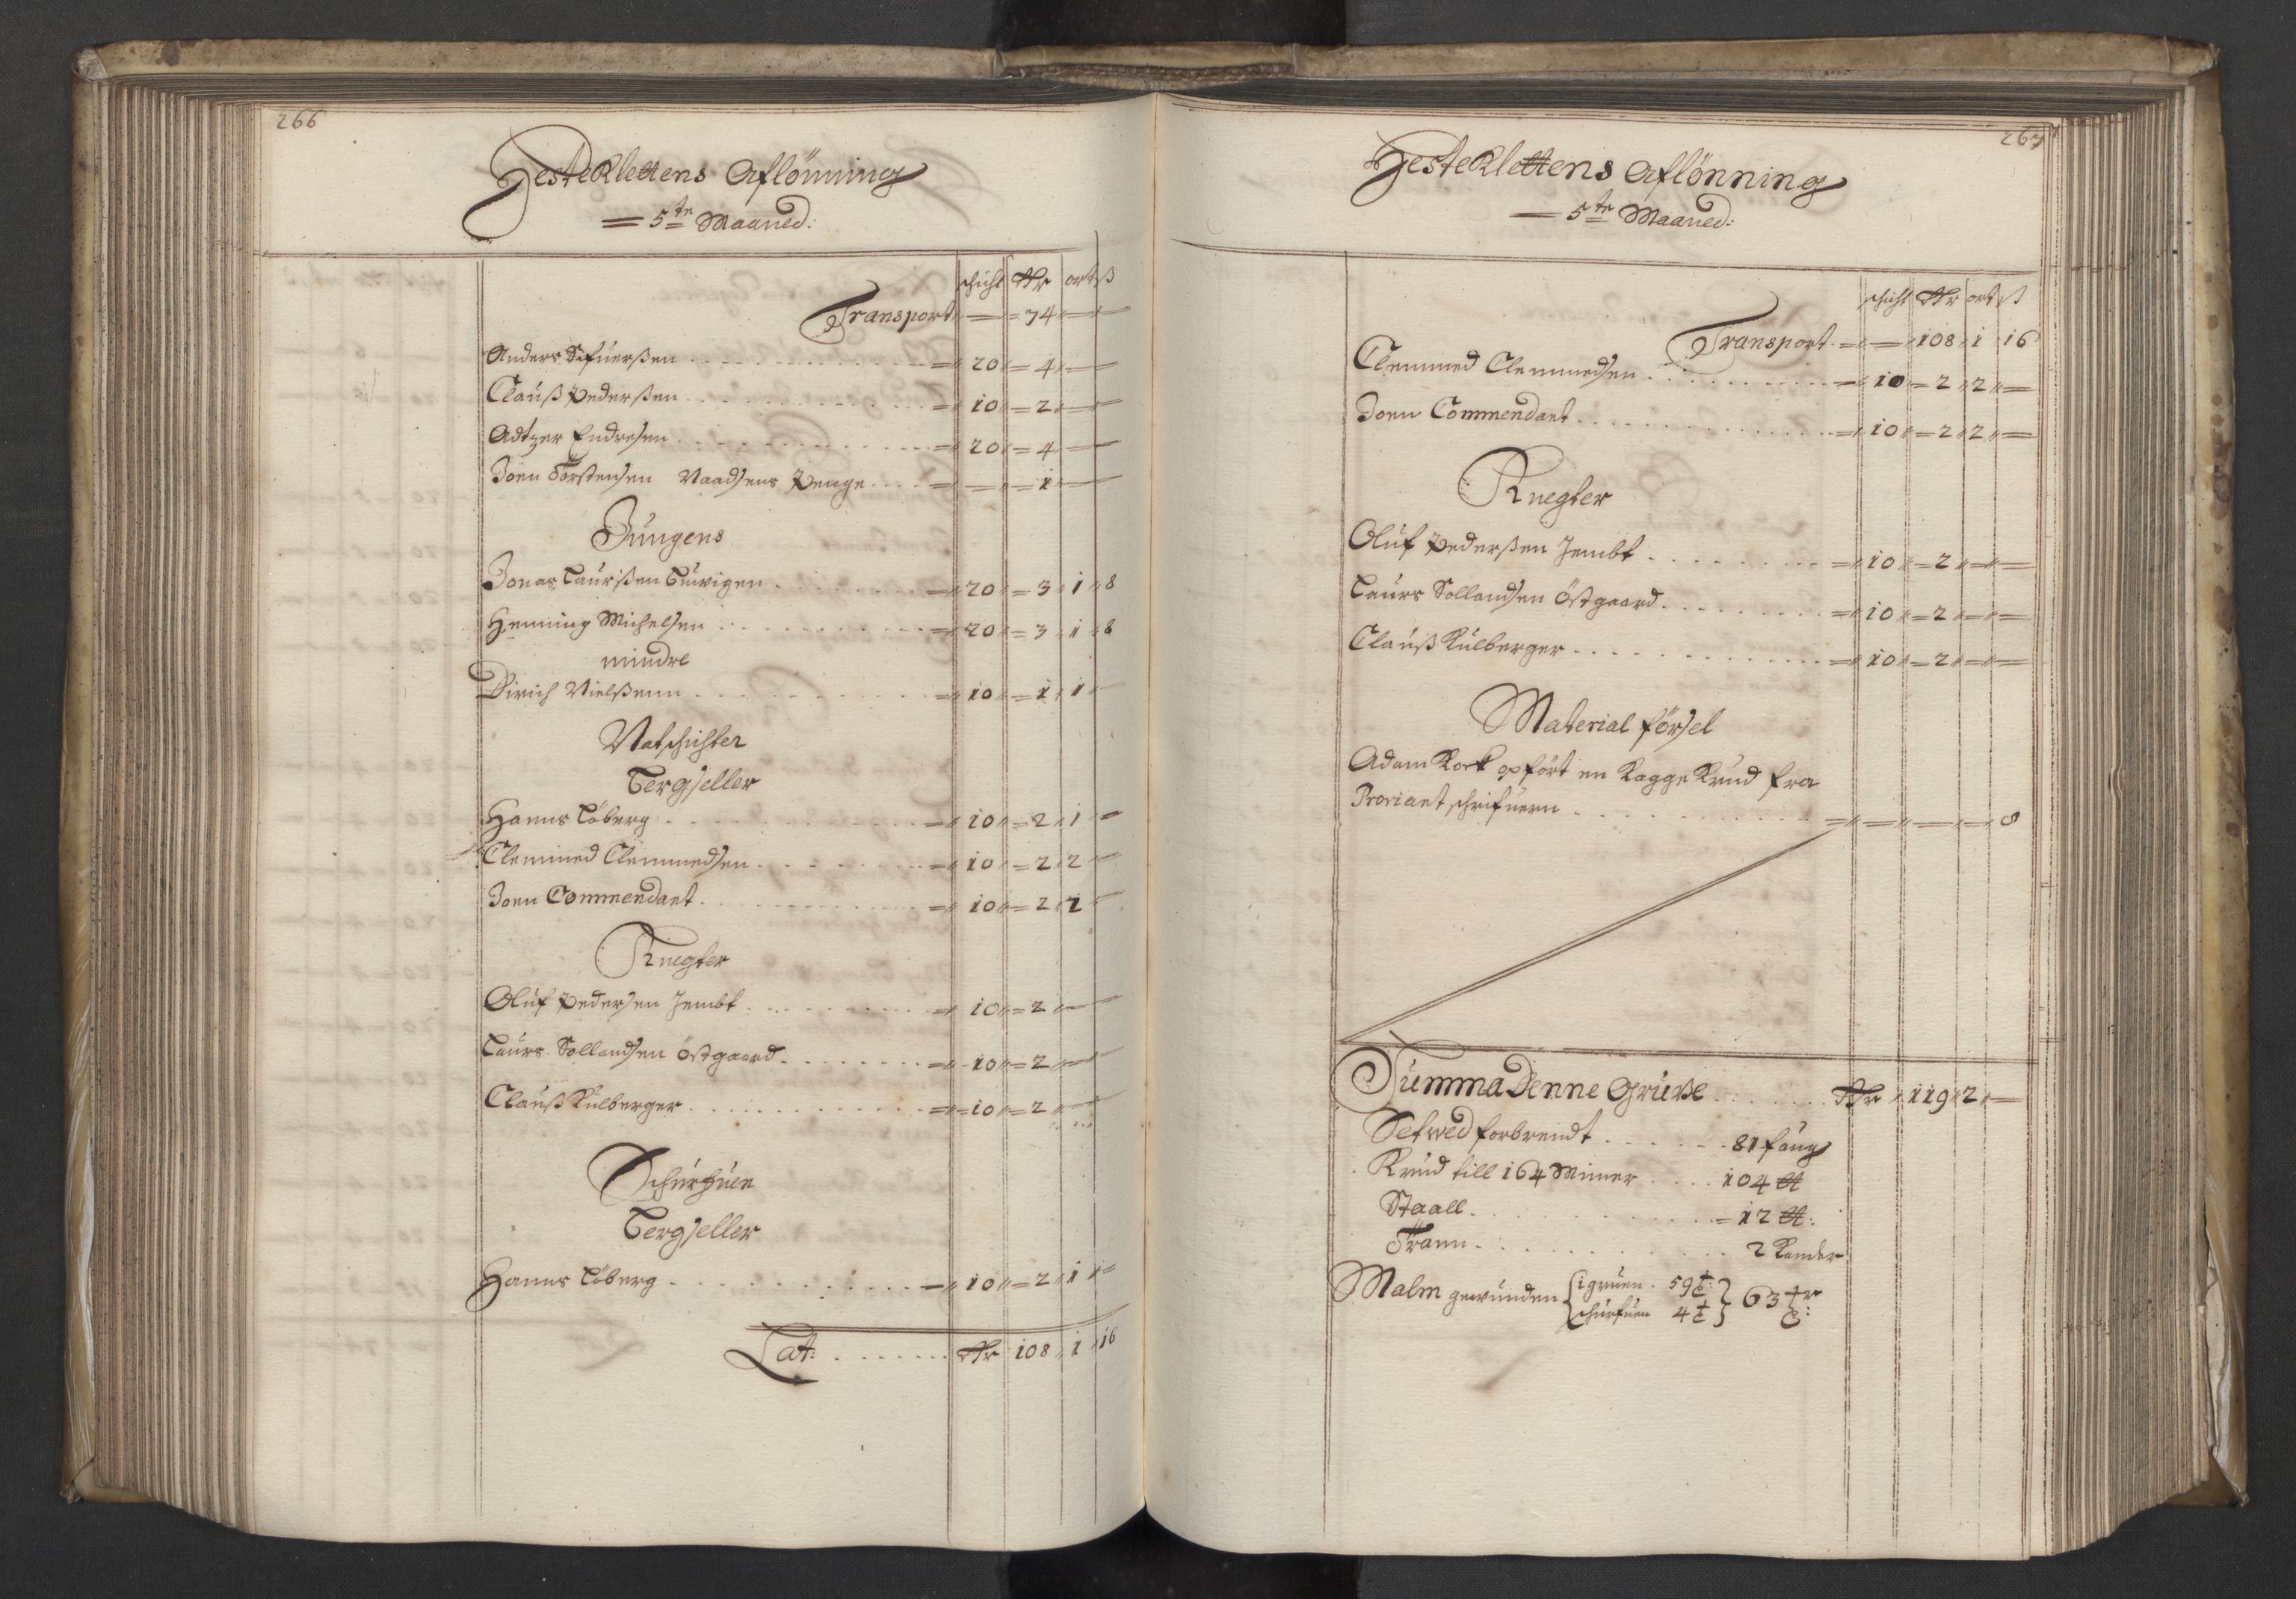 266
Hesteklettens Aflönning
= 5te Maaned:
schicht Rr ort ß
Transport — = 74 —
Anders Sifuerßen = 20 = 4 —
Clauß Pederßen = 10 = 2 —
Adtzer Endresen = 20 = 4 —
Joen Torstensen Vaadsens Penge = — = 1 —
Jungens
Jonas Laurßen Tuwigen = 20 = 3 1 8
Henning Michelsen = 20 = 3 1 8
mindre
Dirich Nielßenn = 10 = 1 1 —
Natschichter
Bergseller
Hanns Löberg = 10 = 2 1 =
Clemmed Clemmedsen = 10 = 2 2 —
Joen Commendant = 10 = 2 2 —
Knegter
Oluf Pedersen Jembt = 10 = 2 —
Laurs Sollandsen Östgaard = 10 = 2 —
Clauß Kulberger = 10 = 2 —
Schürfuen
Bergseller
Hanns Löberg = 10 = 2 1 =
Lat: Rr 108 1 16
267
Hesteklettens Aflönning
= 5te Maaned:
schicht Rr ort ß
Transport = — 108 1 16
Clemmed Clemmedsen = 10 = 2 2 =
Joen Commendant = 10 = 2 2 =
Knegter
Oluf Pederßen Jembt = 10 = 2 = =
Laurs Sollandsen Östgaard = 10 = 2 = =
Clauß Kulberger = 10 = 2 = =
Material försel
Adam Kock opfört en Kagge Krud fra
Proviantschrifuern = — — = 8
Summa Denne Grube Rr 119 2 —
Setwed forbrendt 81 faug
Krud till 164 Miner 104 ℔
Staall = 12 ℔:
Trann 2 Kander
Malm gewunden { i gruen 59 t: schurfuen 4 t } 63 tr: